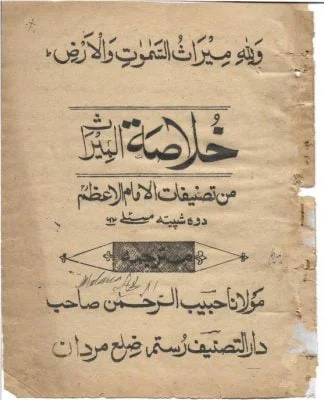 وَلِلّٰهِ مِيرَاثُ السَّمٰوٰتِ وَالْاَرْضِ
خُلاصَة المِیْرَاث
من تصنیفات الامام الاعظم
دوه شپیته مسئلے
مترجمه
مولانا حبیب الرحمٰن صاحب
دار التصنیف رستم ضلع مردان